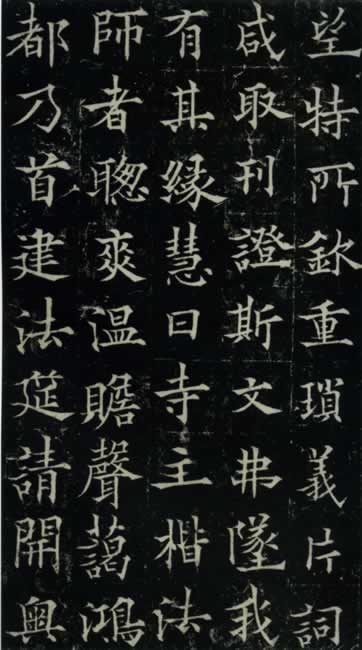 望特所欽重瑣義片詞
咸取刊證斯文弗墜我
有其緣慧日寺主楷法
師者聰爽温贍聲藹鴻
都乃首建法筵請開奥